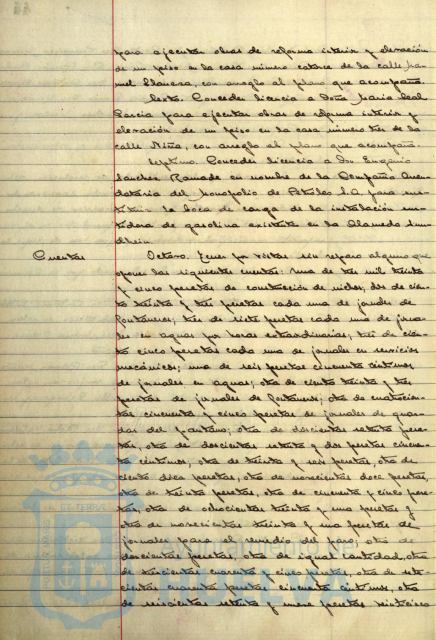 para ejecutar obras de reforma interior y elevación
de un piso en la casa número catorce de la calle Ra-
con arreglo al plano que acompaña.
Sexto. Conceder licencia a Doña Maria Leal
Garcia para ejecutar obras de reforma interior y
elevación de un piso en la casa número tres de la
calle Niña, con arreglo al plano que acompaña.
Septimo. Conceder licencia a Don Eugenio
Sanchez Ramade en nombre de la Compañia Arren-
dataria del Monopolio de Petróleos S.A. para sus-
tituir la boca de carga de la instalación sur-
tidora de gasolina existente en la Alameda Sun-
dheim.
Cuentas
Octavo. Tener por vistas sin reparo alguno que
oponer las siguientes cuentas: una de tres mil treinta
y cinco pesetas de construcción de nichos; dos de cien-
to treinta y tres pesetas cada una de jornales de
fontaneros; tres de siete pesetas cada una de jorna-
les en aguas por horas extraordinarias; tres de cien-
to cinco pesetas cada una de jornales en servicios
mecánicos; una de seis pesetas cincuenta centimos
de jornales en aguas; otra de ciento treinta y tres
pesetas de jornales de fontaneros; otra de cuatrocien-
tas cincuenta y cinco pesetas de jornales de guar-
das del Pantano; otra de doscientas setenta pese-
tas, otra de doscientas setenta y dos pesetas cincuen-
ta centimos; otra de treinta y seis pesetas, otra de
ciento doce pesetas, otra de novecientas doce pesetas,
otra de treinta pesetas, otra de cincuenta y cinco pese-
tas, otra de ochocientas treinta y una pesetas y
otra de novecientas treinta y una pesetas de
jornales para el remedio del paro; otra de
doscientas pesetas, otra de igual cantidad, otra
de trescientas cuarenta y cinco pesetas, otra de sete-
cientas cuarenta pesetas cincuenta centimos, otra
de seiscientas setenta y nueve pesetas veinticinco